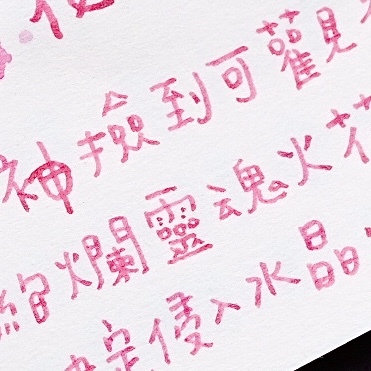 神撿到可觀
絢爛靈魂火花
侵入水晶